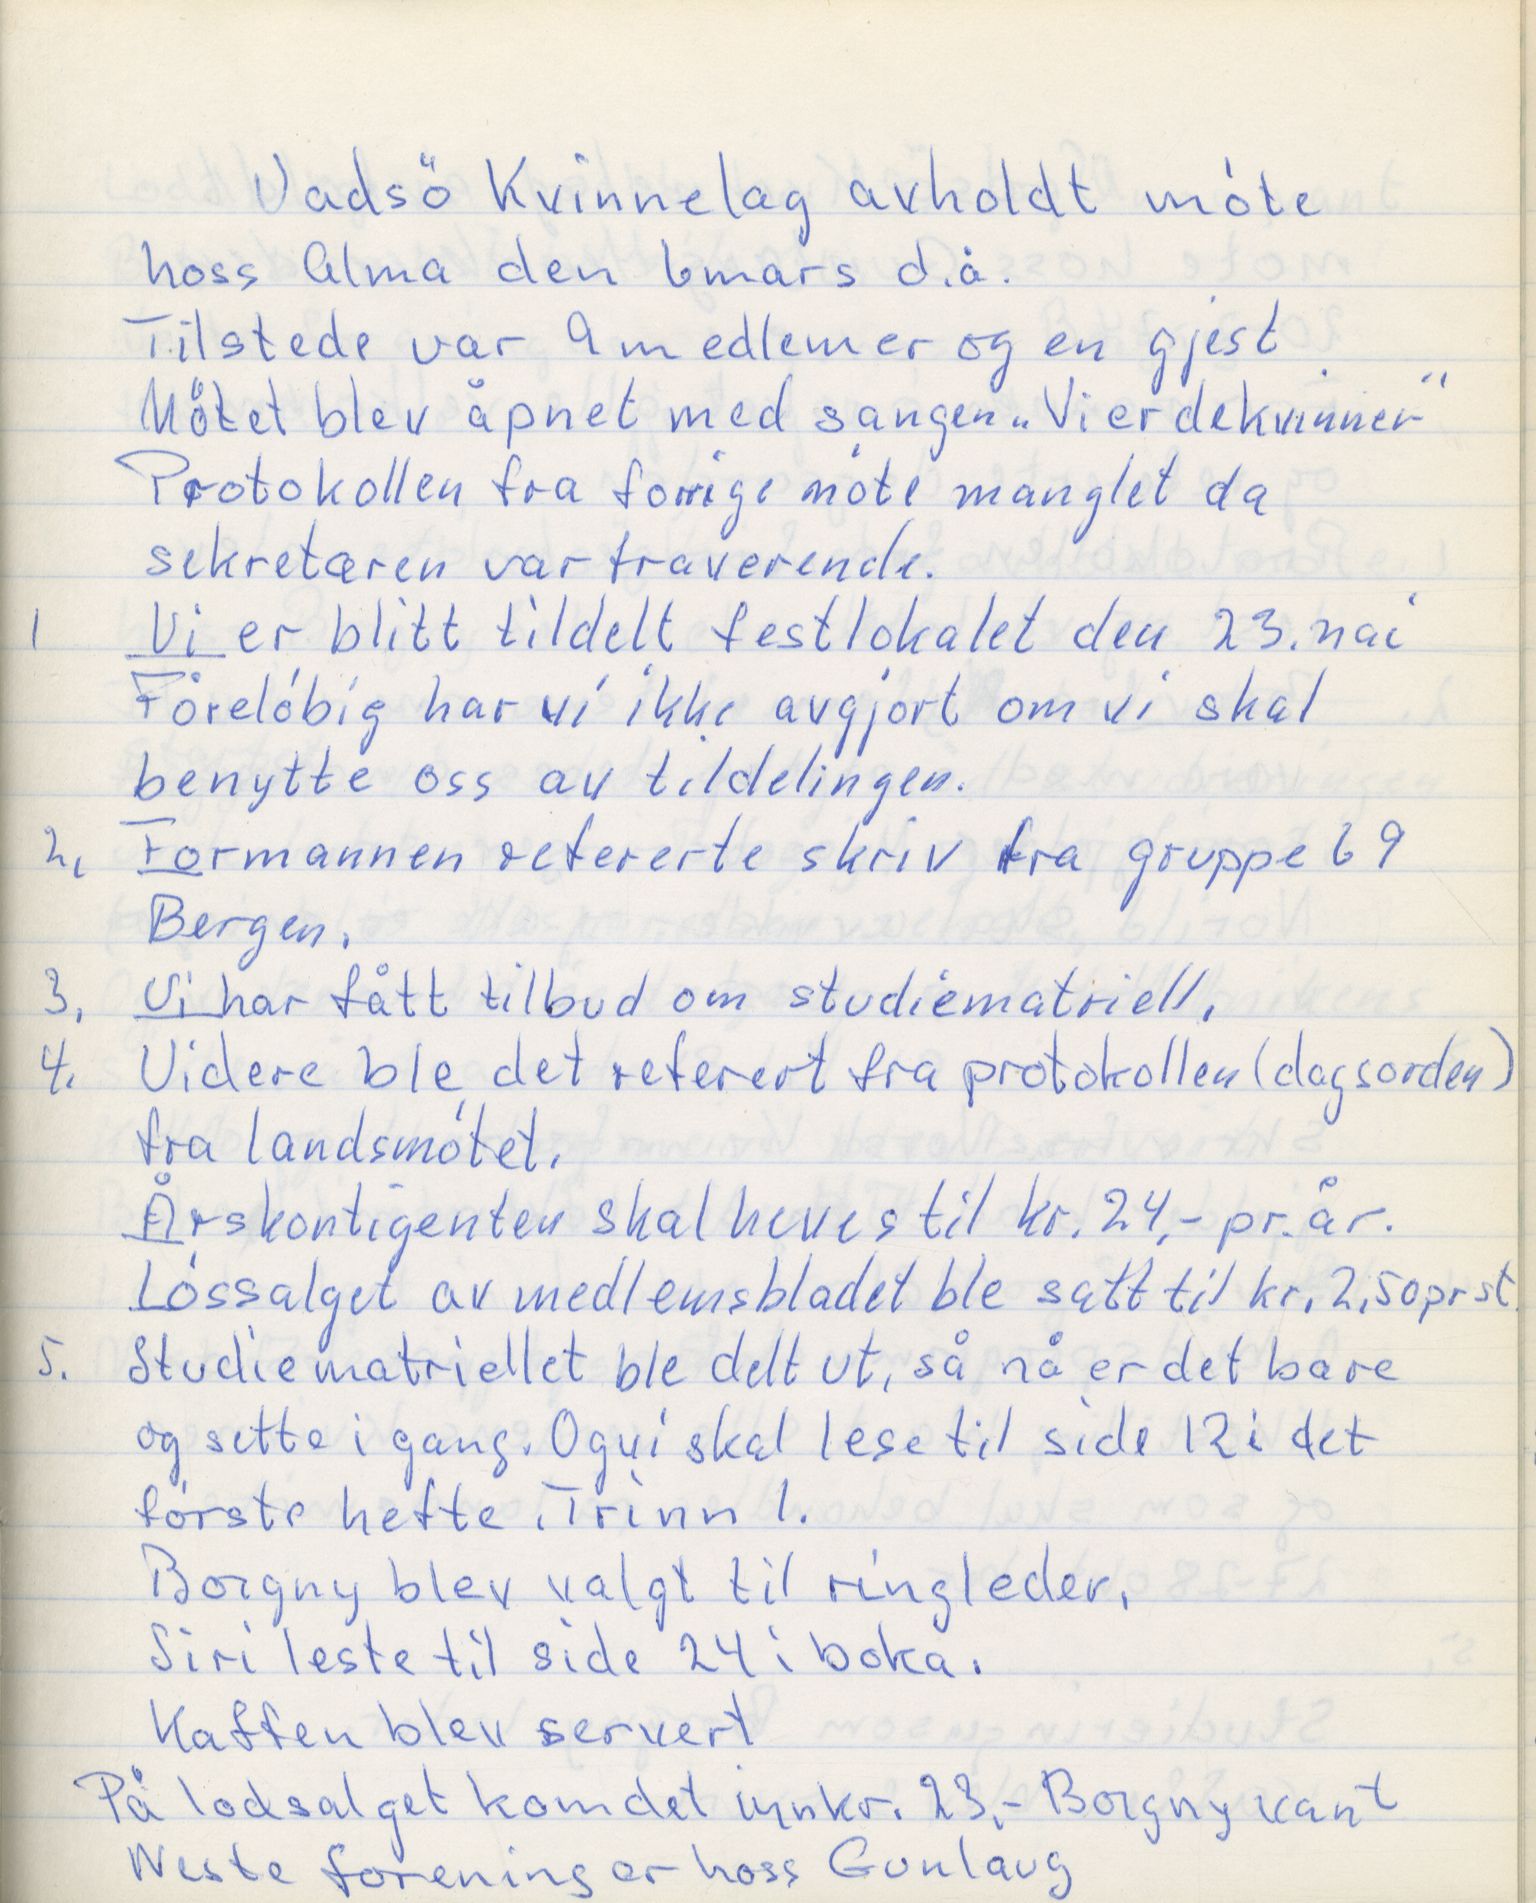 Vadsö Kvinnelag avholdt móte
hoss Alma den 6mars d.å.
Tilstede var 9 medlemer og en gjest.
Mötet blev åpnet med sangen „Vi er de kvinner"
Protokollen fra forrige móte manglet da
sekretæren var fraverende.
1 Vi er blitt tildelt festlokalet den 23. mai
Föreló́big har vi ikke avgjort om vi skal
benytte oss av tildelingen.
2, Formannen refererte skriv fra gruppe 69
Bergen.
3, Vi har fått tilbud om studiematriell.
4. Videre ble det referert fra protokollen (dagsorden)
fra landsmótet.
Årskontigenten skal heves til kr. 24,- pr. år.
Lóssalget av medlemsbladet ble satt til kr. 2,50 pr st.
5. Studiematriellet ble delt ut, så nå er det bare
og sette i gang. Og vi skal lese til side 12 i det
fórste hefte. Trinn 1.
Borgny blev valgt til ringleder.
Siri leste til side 24 i boka.
Kaffen blev servert
På lodsalget kom det inn kr. 23,- Borgny vant
Neste forening er hoss Gunlaug